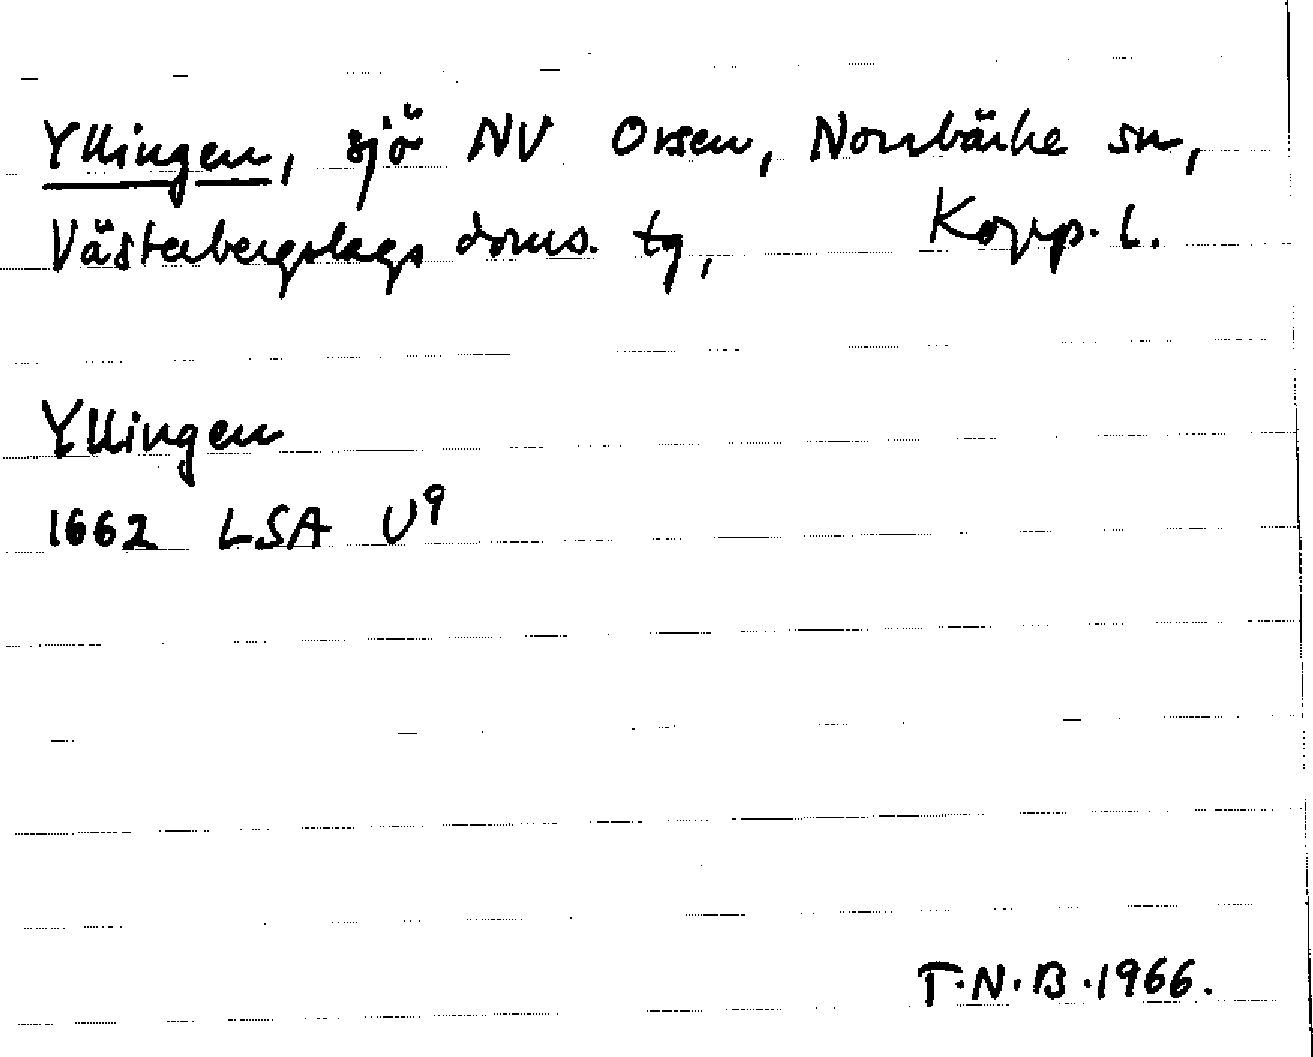 Yllingen, sjö NV Orsen, Norrbärke sn,
Västerbergslags doms. tg, Kopp. l.
Yllingen
1662 LSA U9
T.N.B. 1966.